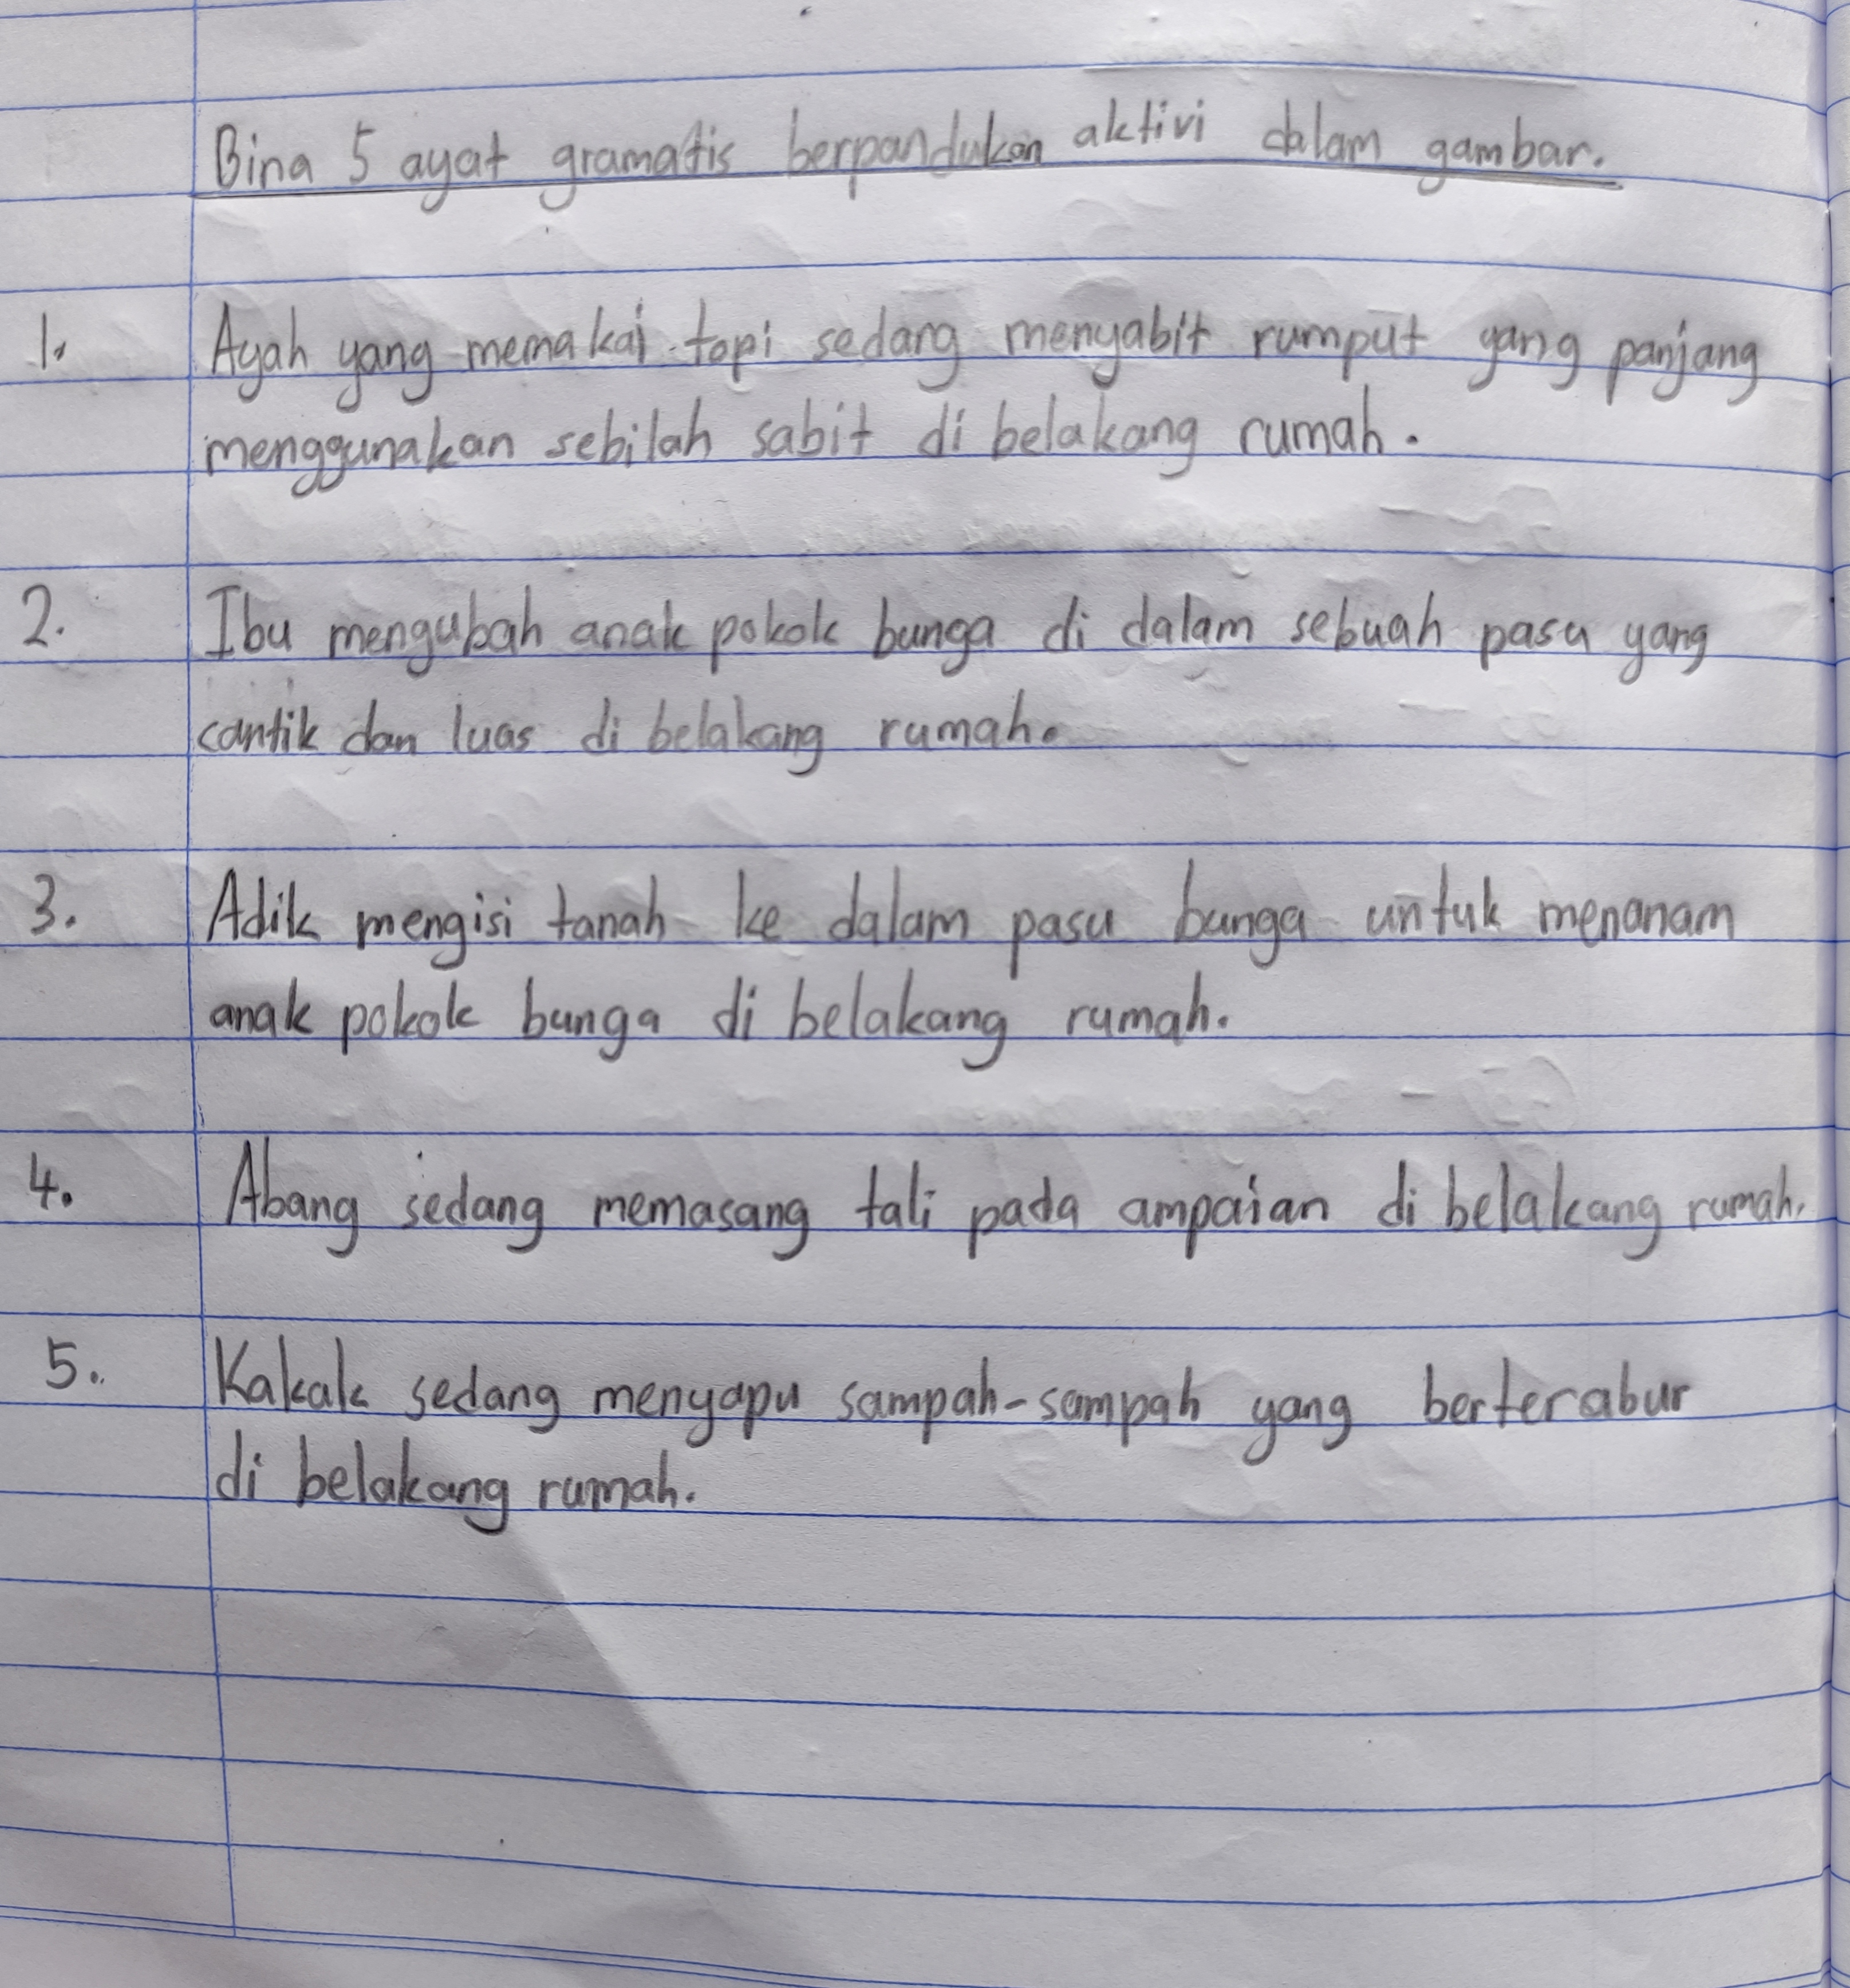 Bina 5 ayat gramatis berpandukan aktivi dalam gambar.
1. Ayah yang memakai topi sedang menyabit rumput yang panjang
menggunakan sebilah sabit di belakang rumah.
2. Ibu mengubah anak pokok bunga di dalam sebuah pasu yang
cantik dan luas di belakang rumah.
3. Adik mengisi tanah ke dalam pasu bunga untuk menanam
anak pokok bunga di belakang rumah.
4. Abang sedang memasang tali pada ampaian di belakang rumah.
5. Kakak sedang menyapu sampah-sampah yang berterabur
di belakang rumah.